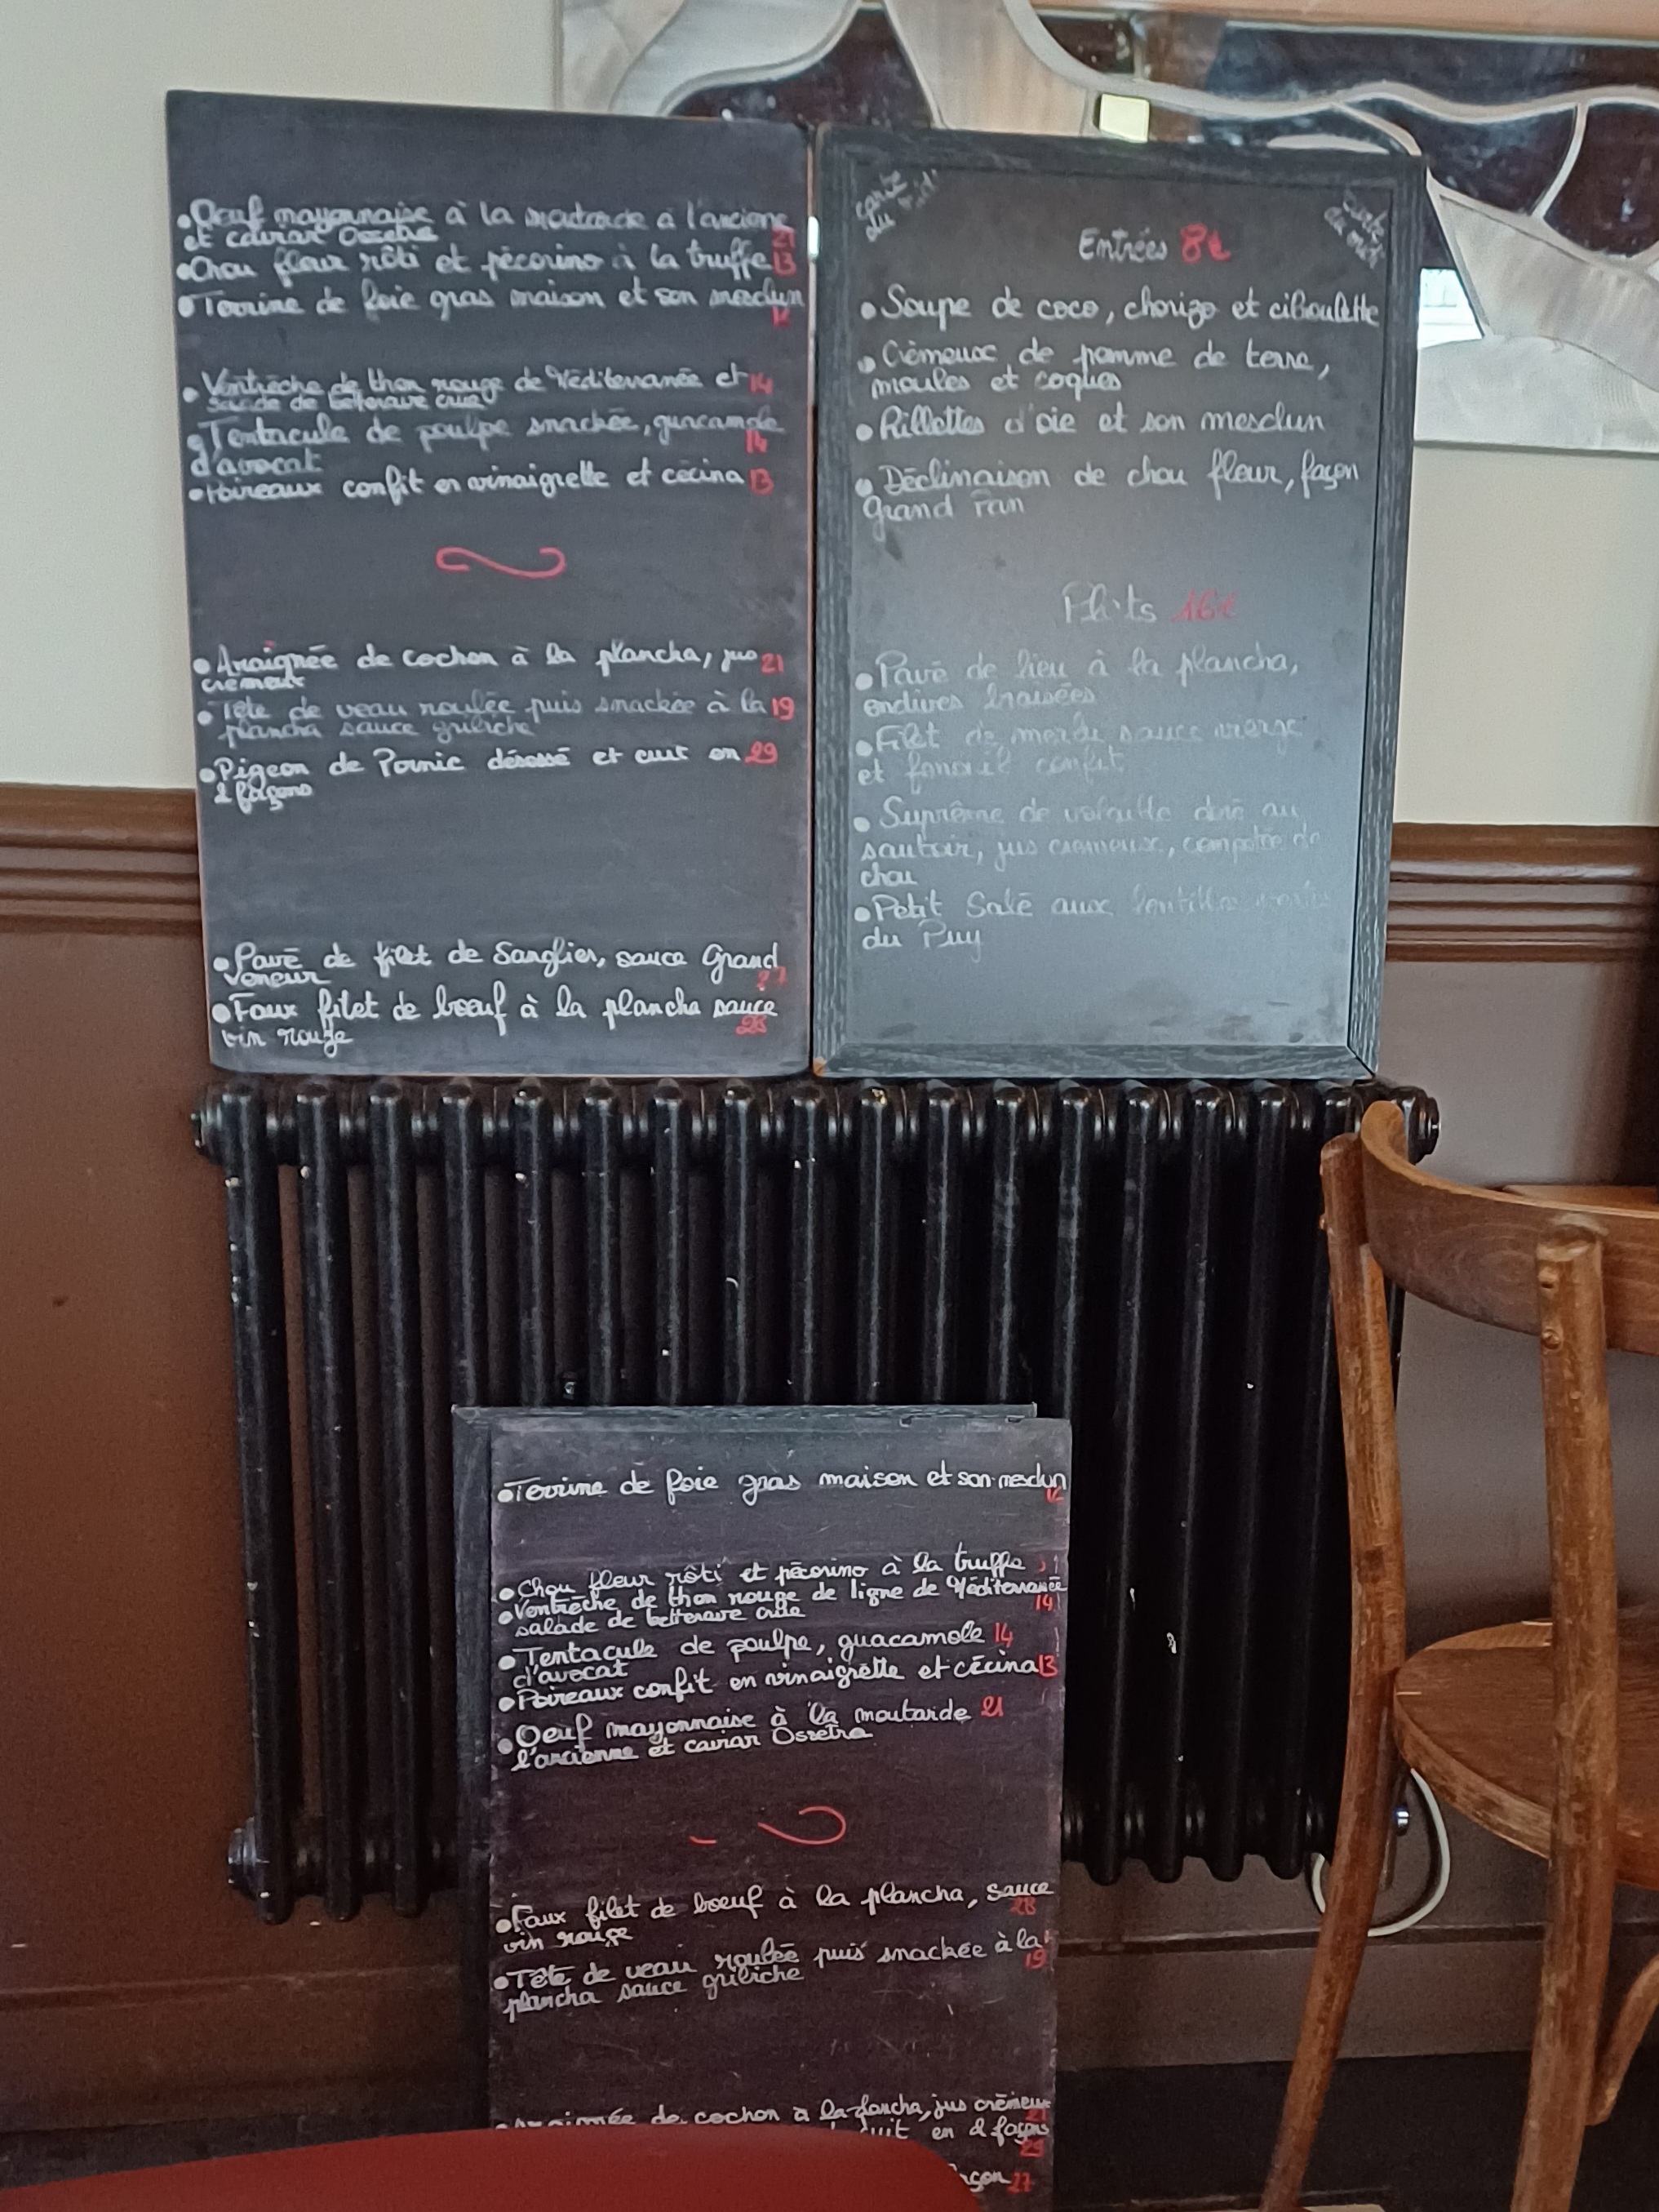 Oeuf mayonnaise à la moutarde à l'ancienne
et caviar Ossetra 21
Chou fleur rôti et pécorino à la truffe 13
Terrine de foie gras maison et son mesclun
Ventrèche de thon rouge de Méditerranée et 14
salade de betterave crue
Tentacule de poulpe snackée, guacamole
14
d'avocat
Poireaux confit en vinaigrette et cécina 13
Araignée de cochon à la plancha, jus 21
crémeux
Tête de veau roulée puis snackée à la 19
plancha sauce gribiche
Pigeon de Pornic désossé et cuit en 29
2 façons
Pavé de filet de Sanglier, sauce Grand
Veneur 27
Faux filet de boeuf à la plancha sauce
vin rouge 28
carte
du midi
carte
du midi
Entrées 8€
Soupe de coco, chorizo et ciboulette
Crèmeux de pomme de terre,
moules et coques
Rillettes d'oie et son mesclun
Déclinaison de chou fleur, façon
Grand Pan
Plats 16€
Pavé de lieu à la plancha,
endives braisées
Filet de merlu sauce vierge
et fenouil confit
Suprême de volaille doré au
sautoir, jus crémeux, compotée de
chou
Petit Salé aux lentilles vertes
du Puy
Terrine de foie gras maison et son mesclun
Chou fleur rôti et pécorino à la truffe
Ventrèche de thon rouge de ligne de Méditerranée
salade de betterave crue 14
Tentacule de poulpe, guacamole 14
d'avocat
Poireaux confit en vinaigrette et cécina 13
Oeuf mayonnaise à la moutarde 21
l'ancienne et caviar Ossetra
Faux filet de boeuf à la plancha, sauce
vin rouge 28
Tête de veau roulée puis snackée à la
plancha sauce gribiche 19
de cochon à la plancha, jus crémeux
21
cuit en 2 façons
29
27